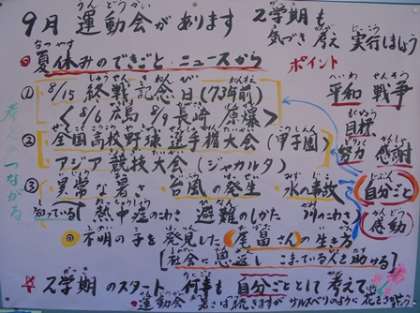 9月 運動会があります
2学期も
気づき 考え 実行しよう
夏休みのできごと・ニュースから
ポイント
① 8/15 終戦記念日(73年前)
平和 戦争
<8/6 広島 8/9 長崎 原爆>
目標
② 全国高校野球選手権大会(甲子園)
努力 感謝
アジア競技大会(ジャカルタ)
③ 異常な暑さ 台風の発生 水の事故
自分ごと
知っている 熱中症のわさ 避難のしかた 川のわさ
感動
不明の子を発見した 尾畠さんの生き方
[社会に恩返し こまっている人を助ける]
☆ 2学期のスタート 何事も 自分ごととして考えて
運動会 暑さは続きますが サルスベリのように 花をさかせよう